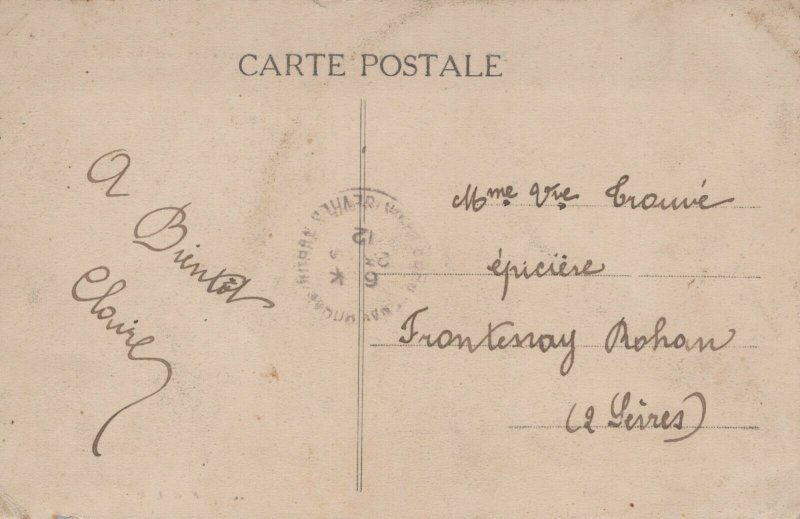 CARTE POSTALE
A
Bientôt
Claire
Mme Vve Trouvé
épicière
Frontenay Rohan
(2 Sèvres)